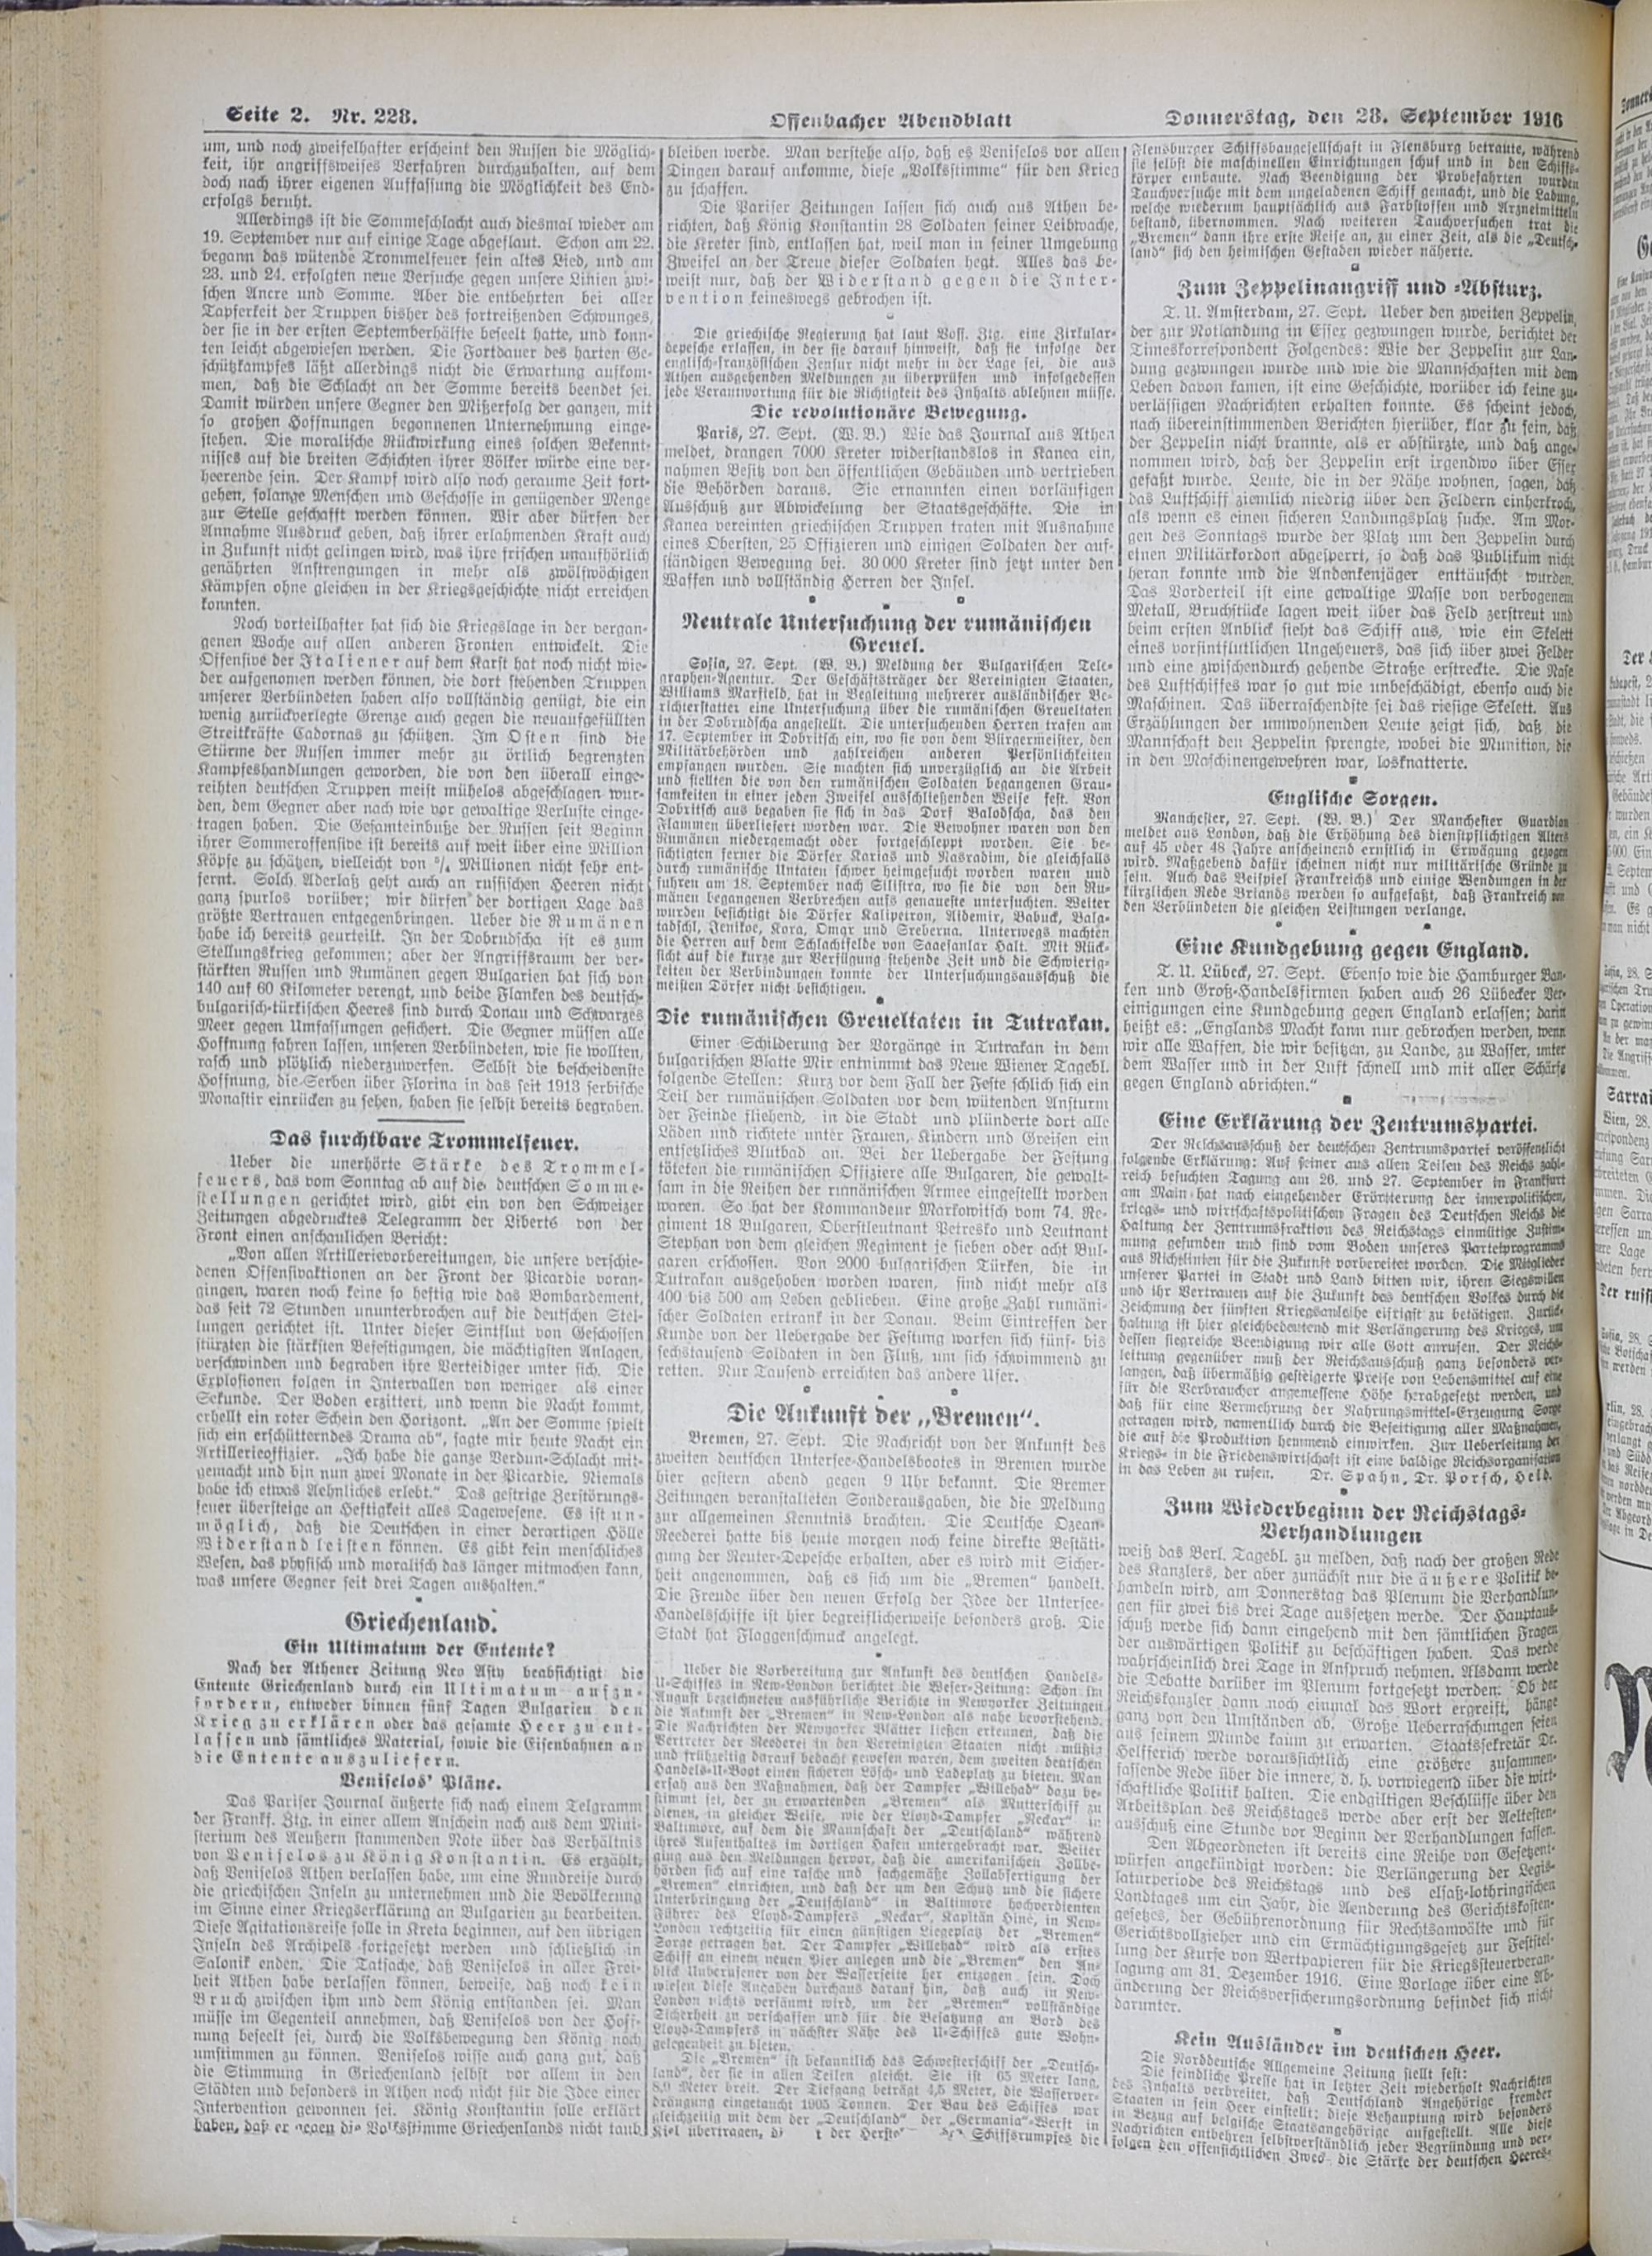 Seite 2. Nr. 228.
Offenbacher Abendblatt
Donnerstag, den 28. September 1916
um, und noch zweifelhafter erscheint den Russen die Möglich-
keit, ihr angriffsweises Verfahren durchzuhalten, auf dem
doch nach ihrer eigenen Auffassung die Möglichkeit des End-
erfolgs beruht.
Allerdings ist die Sommeschlacht auch diesmal wieder am
19. September nur auf einige Tage abgeflaut. Schon am 22.
begann das wütende Trommelfeuer sein altes Lied, und am
23. und 24. erfolgten neue Versuche gegen unsere Linien zwi-
schen Ancre und Somme. Aber die entbehrten bei aller
Tapferkeit der Truppen bisher des fortreißenden Schwunges,
der sie in der ersten Septemberhälfte beseelt hatte, und konn-
ten leicht abgewiesen werden. Die Fortdauer des harten Ge-
schützkampfes läßt allerdings nicht die Erwartung aufkom-
men, daß die Schlacht an der Somme bereits beendet sei.
Damit würden unsere Gegner den Mißerfolg der ganzen, mit
so großen Hoffnungen begonnenen Unternehmung einge-
stehen. Die moralische Rückwirkung eines solchen Bekennt-
nisses auf die breiten Schichten ihrer Völker würde eine ver-
heerende sein. Der Kampf wird also noch geraume Zeit fort-
gehen, solange Menschen und Geschosse in genügender Menge
zur Stelle geschafft werden können. Wir aber dürfen der
Annahme Ausdruck geben, daß ihrer erlahmenden Kraft auch
in Zukunft nicht gelingen wird, was ihre frischen unaufhörlich
genährten Anstrengungen in mehr als zwölfwöchigen
Kämpfen ohne gleichen in der Kriegsgeschichte nicht erreichen
konnten.
Noch vorteilhafter hat sich die Kriegslage in der vergan-
genen Woche auf allen anderen Fronten entwickelt. Die
Offensive der Italiener auf dem Karst hat noch nicht wie-
der aufgenommen werden können, die dort stehenden Truppen
unserer Verbündeten haben also vollständig genügt, die ein
wenig zurückverlegte Grenze auch gegen die neuaufgefüllten
Streitkräfte Cadornas zu schützen. Im Osten sind die
Stürme der Russen immer mehr zu örtlich begrenzten
Kampfeshandlungen geworden, die von den überall einge-
reihten deutschen Truppen meist mühelos abgeschlagen wur-
den, dem Gegner aber nach wie vor gewaltige Verluste einge-
tragen haben. Die Gesamteinbuße der Russen seit Beginn
ihrer Sommeroffensive ist bereits auf weit über eine Million
Köpfe zu schätzen, vielleicht von 5/4 Millionen nicht sehr ent-
fernt. Solch Aderlaß geht auch an russischen Heeren nicht
ganz spurlos vorüber; wir dürfen der dortigen Lage das
größte Vertrauen entgegenbringen. Ueber die Rumänen
habe ich bereits geurteilt. In der Dobrudscha ist es zum
Stellungskrieg gekommen; aber der Angriffsraum der ver-
stärkten Russen und Rumänen gegen Bulgarien hat sich von
140 auf 60 Kilometer verengt, und beide Flanken des deutsch-
bulgarisch-türkischen Heeres sind durch Donau und Schwarzes
Meer gegen Umfassungen gesichert. Die Gegner müssen alle
Hoffnung fahren lassen, unseren Verbündeten, wie sie wollten,
rasch und plötzlich niederzuwerfen. Selbst die bescheidenste
Hoffnung, die Serben über Florina in das seit 1913 serbische
Monastir einrücken zu sehen, haben sie selbst bereits begraben.
Das furchtbare Trommelfeuer.
Ueber die unerhörte Stärke des Trommel-
feuers, das vom Sonntag ab auf die deutschen Somme-
stellungen gerichtet wird, gibt ein von den Schweizer
Zeitungen abgedrucktes Telegramm der Liberté von der
Front einen anschaulichen Bericht:
„Von allen Artillerievorbereitungen, die unsere verschie-
denen Offensivaktionen an der Front der Picardie voran-
gingen, waren noch keine so heftig wie das Bombardement,
das seit 72 Stunden ununterbrochen auf die deutschen Stel-
lungen gerichtet ist. Unter dieser Sintflut von Geschossen
stürzten die stärksten Befestigungen, die mächtigsten Anlagen,
verschwinden und begraben ihre Verteidiger unter sich. Die
Explosionen folgen in Intervallen von weniger als einer
Sekunde. Der Boden erzittert, und wenn die Nacht kommt,
erhellt ein roter Schein den Horizont. „An der Somme spielt
sich ein erschütterndes Drama ab“, sagte mir heute Nacht ein
Artillerieoffizier. „Ich habe die ganze Verdun-Schlacht mit-
gemacht und bin nun zwei Monate in der Picardie. Niemals
habe ich etwas Aehnliches erlebt.“ Das gestrige Zerstörungs-
feuer übersteige an Heftigkeit alles Dagewesene. Es ist un-
möglich, daß die Deutschen in einer derartigen Hölle
Widerstand leisten können. Es gibt kein menschliches
Wesen, das physisch und moralisch das länger mitmachen kann,
was unsere Gegner seit drei Tagen aushalten.“
Griechenland.
Ein Ultimatum der Entente?
Nach der Athener Zeitung Neo Asty beabsichtigt die
Entente Griechenland durch ein Ultimatum aufzu-
fordern, entweder binnen fünf Tagen Bulgarien den
Krieg zu erklären oder das gesamte Heer zu ent-
lassen und sämtliches Material, sowie die Eisenbahnen an
die Entente auszuliefern.
Veniselos’ Pläne.
Das Pariser Journal äußerte sich nach einem Telgramm
der Frankf. Ztg. in einer allem Anschein nach aus dem Mini-
sterium des Aeußern stammenden Note über das Verhältnis
von Veniselos zu König Konstantin. Es erzählt,
daß Veniselos Athen verlassen habe, um eine Rundreise durch
die griechischen Inseln zu unternehmen und die Bevölkerung
im Sinne einer Kriegserklärung an Bulgarien zu bearbeiten.
Diese Agitationsreise solle in Kreta beginnen, auf den übrigen
Inseln des Archipels fortgesetzt werden und schließlich in
Salonik enden. Die Tatsache, daß Veniselos in aller Frei-
heit Athen habe verlassen können, beweise, daß noch kein
Bruch zwischen ihm und dem König entstanden sei. Man
müsse im Gegenteil annehmen, daß Veniselos von der Hoff-
nung beseelt sei, durch die Volksbewegung den König noch
umstimmen zu können. Veniselos wisse auch ganz gut, daß
die Stimmung in Griechenland selbst vor allem in den
Städten und besonders in Athen noch nicht für die Idee einer
Intervention gewonnen sei. König Konstantin solle erklärt
haben, daß er gegen die Volksstimme Griechenlands nicht taub
bleiben werde. Man verstehe also, daß es Veniselos vor allen
Dingen darauf ankomme, diese „Volksstimme“ für den Krieg
zu schaffen.
Die Pariser Zeitungen lassen sich auch aus Athen be-
richten, daß König Konstantin 28 Soldaten seiner Leibwache,
die Kreter sind, entlassen hat, weil man in seiner Umgebung
Zweifel an der Treue dieser Soldaten hegt. Alles das be-
weist nur, daß der Widerstand gegen die Inter-
vention keineswegs gebrochen ist.
Die griechische Regierung hat laut Voss. Ztg. eine Zirkular-
depesche erlassen, in der sie darauf hinweist, daß sie infolge der
englisch-französischen Zensur nicht mehr in der Lage sei, die aus
Athen ausgehenden Meldungen zu überprüfen und infolgedessen
jede Verantwortung für die Richtigkeit des Inhalts ablehnen müsse.
Die revolutionäre Bewegung.
Paris, 27. Sept. (W. B.) Wie das Journal aus Athen
meldet, drangen 7000 Kreter widerstandslos in Kanea ein,
nahmen Besitz von den öffentlichen Gebäuden und vertrieben
die Behörden daraus. Sie ernannten einen vorläufigen
Ausschuß zur Abwickelung der Staatsgeschäfte. Die in
Kanea vereinten griechischen Truppen traten mit Ausnahme
eines Obersten, 25 Offizieren und einigen Soldaten der auf-
ständigen Bewegung bei. 30 000 Kreter sind jetzt unter den
Waffen und vollständig Herren der Insel.
Neutrale Untersuchung der rumänischen
Greuel.
Sofia, 27. Sept. (W. B.) Meldung der Bulgarischen Tele-
graphen-Agentur. Der Geschäftsträger der Vereinigten Staaten,
Williams Marfield, hat in Begleitung mehrerer ausländischer Be-
richterstatter eine Untersuchung über die rumänischen Greueltaten
in der Dobrudscha angestellt. Die untersuchenden Herren trafen am
17. September in Dobritsch ein, wo sie von dem Bürgermeister, den
Militärbehörden und zahlreichen anderen Persönlichkeiten
empfangen wurden. Sie machten sich unverzüglich an die Arbeit
und stellten die von den rumänischen Soldaten begangenen Grau-
samkeiten in einer jeden Zweifel ausschließenden Weise fest. Von
Dobritsch aus begaben sie sich in das Dorf Balodscha, das den
Flammen überliefert worden war. Die Bewohner waren von den
Rumänen niedergemacht oder fortgeschleppt worden. Sie be-
sichtigten ferner die Dörfer Karias und Nasradim, die gleichfalls
durch rumänische Untaten schwer heimgesucht worden waren und
fuhren am 18. September nach Silistra, wo sie die von den Ru-
mänen begangenen Verbrechen aufs genaueste untersuchten. Weiter
wurden besichtigt die Dörfer Kalipetron, Aidemir, Babuck, Bala-
tadschl, Jenikoe, Kora, Omgr und Sreberna. Unterwegs machten
die Herren auf dem Schlachtfelde von Saaesanlar Halt. Mit Rück-
sicht auf die kurze zur Verfügung stehende Zeit und die Schwierig-
keiten der Verbindungen konnte der Untersuchungsausschuß die
meisten Dörfer nicht besichtigen.
Die rumänischen Greueltaten in Tutrakan.
Einer Schilderung der Vorgänge in Tutrakan in dem
bulgarischen Blatte Mir entnimmt das Neue Wiener Tagebl.
folgende Stellen: Kurz vor dem Fall der Feste schlich sich ein
Teil der rumänischen Soldaten vor dem wütenden Ansturm
der Feinde fliehend, in die Stadt und plünderte dort alle
Läden und richtete unter Frauen, Kindern und Greisen ein
entsetzliches Blutbad an. Bei der Uebergabe der Festung
töteten die rumänischen Offiziere alle Bulgaren, die gewalt-
sam in die Reihen der rumänischen Armee eingestellt worden
waren. So hat der Kommandeur Markowitsch vom 74. Re-
giment 18 Bulgaren, Oberstleutnant Petresko und Leutnant
Stephan von dem gleichen Regiment je sieben oder acht Bul-
garen erschossen. Von 2000 bulgarischen Türken, die in
Tutrakan ausgehoben worden waren, sind nicht mehr als
400 bis 500 am Leben geblieben. Eine große Zahl rumäni-
scher Soldaten ertrank in der Donau. Beim Eintreffen der
Kunde von der Uebergabe der Festung warfen sich fünf- bis
sechstausend Soldaten in den Fluß, um sich schwimmend zu
retten. Nur Tausend erreichten das andere Ufer.
Die Ankunft der „Bremen“.
Bremen, 27. Sept. Die Nachricht von der Ankunft des
zweiten deutschen Untersee-Handelsbootes in Bremen wurde
hier gestern abend gegen 9 Uhr bekannt. Die Bremer
Zeitungen veranstalteten Sonderausgaben, die die Meldung
zur allgemeinen Kenntnis brachten. Die Deutsche Ozean-
Reederei hatte bis heute morgen noch keine direkte Bestäti-
gung der Reuter-Depesche erhalten, aber es wird mit Sicher-
heit angenommen, daß es sich um die „Bremen“ handelt.
Die Freude über den neuen Erfolg der Idee der Untersee-
Handelsschiffe ist hier begreiflicherweise besonders groß. Die
Stadt hat Flaggenschmuck angelegt.
Ueber die Vorbereitung zur Ankunft des deutschen Handels-
U-Schiffes in New-London berichtet die Weser-Zeitung: Schon im
August bezeichneten ausführliche Berichte in Newyorker Zeitungen
die Ankunft der „Bremen“ in New-London als nahe bevorstehend.
Die Nachrichten der Newyorker Blätter ließen erkennen, daß die
Vertreter der Reederei in den Vereinigten Staaten nicht müßig
und frühzeitig darauf bedacht gewesen waren, dem zweiten deutschen
Handels-U-Boot einen sicheren Lösch- und Ladeplatz zu bieten. Man
ersah aus den Maßnahmen, daß der Dampfer „Willehad“ dazu be-
stimmt sei, der zu erwartenden „Bremen“ als Mutterschiff zu
dienen, in gleicher Weise, wie der Lloyd-Dampfer „Neckar“ in
Baltimore, auf dem die Mannschaft der „Deutschland“ während
ihres Aufenthaltes im dortigen Hafen untergebracht war. Weiter
ging aus den Meldungen hervor, daß die amerikanischen Zollbe-
hörden sich auf eine rasche und sachgemäße Zollabfertigung der
„Bremen“ einrichten, und daß der um den Schutz und die sichere
Unterbringung der „Deutschland“ in Baltimore hochverdienten
Führer des Lloyd-Dampfers „Neckar“, Kapitän Hinc, in New-
London rechtzeitig für einen günstigen Liegeplatz der „Bremen“
Sorge getragen hat. Der Dampfer „Willehad“ wird als erstes
Schiff an einem neuen Pier anlegen und die „Bremen“ den An-
blick Unberufener von der Wasserseite her entzogen sein. Doch
wiesen diese Angaben durchaus darauf hin, daß auch in New-
London nichts versäumt wird, um der „Bremen“ vollständige
Sicherheit zu verschaffen und für die Besatzung an Bord des
Lloyd-Dampfers in nächster Nähe des U-Schiffes gute Wohn-
gelegenheit zu bieten.
Die „Bremen“ ist bekanntlich das Schwesterschiff der „Deutsch-
land“, der sie in allen Teilen gleicht. Sie ist 65 Meter lang,
8,9 Meter breit. Der Tiefgang beträgt 4,5 Meter, die Wasserver-
drängung eingetaucht 1905 Tonnen. Der Bau des Schiffes war
gleichzeitig mit dem der „Deutschland“ der „Germania“-Werft in
Kiel übertragen, der Schiffsrumpfes die
Flensburger Schiffsbaugesellschaft in Flensburg betraute, während
sie selbst die maschinellen Einrichtungen schuf und in den Schiffs-
körper einbaute. Nach Beendigung der Probefahrten wurden
Tauchversuche mit dem ungeladenen Schiff gemacht, und die Ladung,
welche wiederum hauptsächlich aus Farbstoffen und Arzneimitteln
bestand, übernommen. Nach weiteren Tauchversuchen trat die
„Bremen“ dann ihre erste Reise an, zu einer Zeit, als die „Deutsch-
land“ sich den heimischen Gestaden wieder näherte.
Zum Zeppelinangriff und -Absturz.
T. U. Amsterdam, 27. Sept. Ueber den zweiten Zeppelin,
der zur Notlandung in Essex gezwungen wurde, berichtet der
Timeskorrespondent Folgendes: Wie der Zeppelin zur Lan-
dung gezwungen wurde und wie die Mannschaften mit dem
Leben davon kamen, ist eine Geschichte, worüber ich keine zu-
verlässigen Nachrichten erhalten konnte. Es scheint jedoch,
nach übereinstimmenden Berichten hierüber, klar zu sein, daß
der Zeppelin nicht brannte, als er abstürzte, und daß ange-
nommen wird, daß der Zeppelin erst irgendwo über Essex
gefaßt wurde. Leute, die in der Nähe wohnen, sagen, daß
das Luftschiff ziemlich niedrig über den Feldern einherkroch,
als wenn es einen sicheren Landungsplatz suche. Am Mor-
gen des Sonntags wurde der Platz um den Zeppelin durch
einen Militärkordon abgesperrt, so daß das Publikum nicht
heran konnte und die Andenkenjäger enttäuscht wurden.
Das Vorderteil ist eine gewaltige Masse von verbogenem
Metall, Bruchstücke lagen weit über das Feld zerstreut und
beim ersten Anblick sieht das Schiff aus, wie ein Skelett
eines vorsintflutlichen Ungeheuers, das sich über zwei Felder
und eine zwischendurch gehende Straße erstreckte. Die Nase
des Luftschiffes war so gut wie unbeschädigt, ebenso auch die
Maschinen. Das überraschendste sei das riesige Skelett. Aus
Erzählungen der umwohnenden Leute zeigt sich, daß die
Mannschaft den Zeppelin sprengte, wobei die Munition, die
in den Maschinengewehren war, losknatterte.
Englische Sorgen.
Manchester, 27. Sept. (W. B.) Der Manchester Guardian
meldet aus London, daß die Erhöhung des dienstpflichtigen Alters
auf 45 oder 48 Jahre anscheinend ernstlich in Erwägung gezogen
wird. Maßgebend dafür scheinen nicht nur militärische Gründe zu
sein. Auch das Beispiel Frankreichs und einige Wendungen in der
kürzlichen Rede Briands werden so aufgefaßt, daß Frankreich von
den Verbündeten die gleichen Leistungen verlange.
Eine Kundgebung gegen England.
T. U. Lübeck, 27. Sept. Ebenso wie die Hamburger Ban-
ken und Groß-Handelsfirmen haben auch 26 Lübecker Ver-
einigungen eine Kundgebung gegen England erlassen; darin
heißt es: „Englands Macht kann nur gebrochen werden, wenn
wir alle Waffen, die wir besitzen, zu Lande, zu Wasser, unter
dem Wasser und in der Luft schnell und mit aller Schärfe
gegen England abrichten.“
Eine Erklärung der Zentrumspartei.
Der Reichsausschuß der deutschen Zentrumspartei veröffentlicht
folgende Erklärung: Auf seiner aus allen Teilen des Reichs zahl-
reich besuchten Tagung am 26. und 27. September in Frankfurt
am Main hat nach eingehender Erörterung der innerpolitischen,
kriegs- und wirtschaftspolitischen Fragen des Deutschen Reichs die
Haltung der Zentrumsfraktion des Reichstags einmütige Zustim-
mung gefunden und sind vom Boden unseres Parteiprogramms
aus Richtlinien für die Zukunft vorbereitet worden. Die Mitglieder
unserer Partei in Stadt und Land bitten wir, ihren Siegswillen
und ihr Vertrauen auf die Zukunft des deutschen Volkes durch die
Zeichnung der fünften Kriegsanleihe eifrigst zu betätigen. Zurück-
haltung ist hier gleichbedeutend mit Verlängerung des Krieges, um
dessen siegreiche Beendigung wir alle Gott anrufen. Der Reichs-
leitung gegenüber muß der Reichsausschuß ganz besonders ver-
langen, daß übermäßig gesteigerte Preise von Lebensmittel auf eine
für die Verbraucher angemessene Höhe herabgesetzt werden, und
daß für eine Vermehrung der Nahrungsmittel-Erzeugung Sorge
getragen wird, namentlich durch die Beseitigung aller Maßnahmen,
die auf die Produktion hemmend einwirken. Zur Ueberleitung der
Kriegs- in die Friedenswirtschaft ist eine baldige Reichsorganisation
in das Leben zu rufen. Dr. Spahn, Dr. Porsch, Held.
Zum Wiederbeginn der Reichstags-
Verhandlungen
weiß das Berl. Tagebl. zu melden, daß nach der großen Rede
des Kanzlers, der aber zunächst nur die äußere Politik be-
handeln wird, am Donnerstag das Plenum die Verhandlun-
gen für zwei bis drei Tage aussetzen werde. Der Hauptaus-
schuß werde sich dann eingehend mit den sämtlichen Fragen
der auswärtigen Politik zu beschäftigen haben. Das werde
wahrscheinlich drei Tage in Anspruch nehmen. Alsdann werde
die Debatte darüber im Plenum fortgesetzt werden. Ob der
Reichskanzler dann noch einmal das Wort ergreift, hänge
ganz von den Umständen ab. Große Ueberraschungen seien
aus seinem Munde kaum zu erwarten. Staatssekretär Dr.
Helfferich werde voraussichtlich eine größere zusammen-
fassende Rede über die innere, d. h. vorwiegend über die wirt-
schaftliche Politik halten. Die endgiltigen Beschlüsse über den
Arbeitsplan des Reichstages werde aber erst der Aeltesten-
ausschuß eine Stunde vor Beginn der Verhandlungen fassen.
Den Abgeordneten ist bereits eine Reihe von Gesetzent-
würfen angekündigt worden: die Verlängerung der Legis-
laturperiode des Reichstags und des elsaß-lothringischen
Landtages um ein Jahr, die Aenderung des Gerichtskosten-
gesetzes, der Gebührenordnung für Rechtsanwälte und für
Gerichtsvollzieher und ein Ermächtigungsgesetz zur Feststel-
lung der Kurse von Wertpapieren für die Kriegssteuerveran-
lagung am 31. Dezember 1916. Eine Vorlage über eine Ab-
änderung der Reichsversicherungsordnung befindet sich nicht
darunter.
Kein Ausländer im deutschen Heer.
Die Norddeutsche Allgemeine Zeitung stellt fest:
Die feindliche Presse hat in letzter Zeit wiederholt Nachrichten
des Inhalts verbreitet, daß Deutschland Angehörige fremder
Staaten in sein Heer einstellt; diese Behauptung wird besonders
in Bezug auf belgische Staatsangehörige aufgestellt. Alle diese
Nachrichten entbehren selbstverständlich jeder Begründung und ver-
folgen den offensichtlichen Zweck, die Stärke der deutschen Heeres-